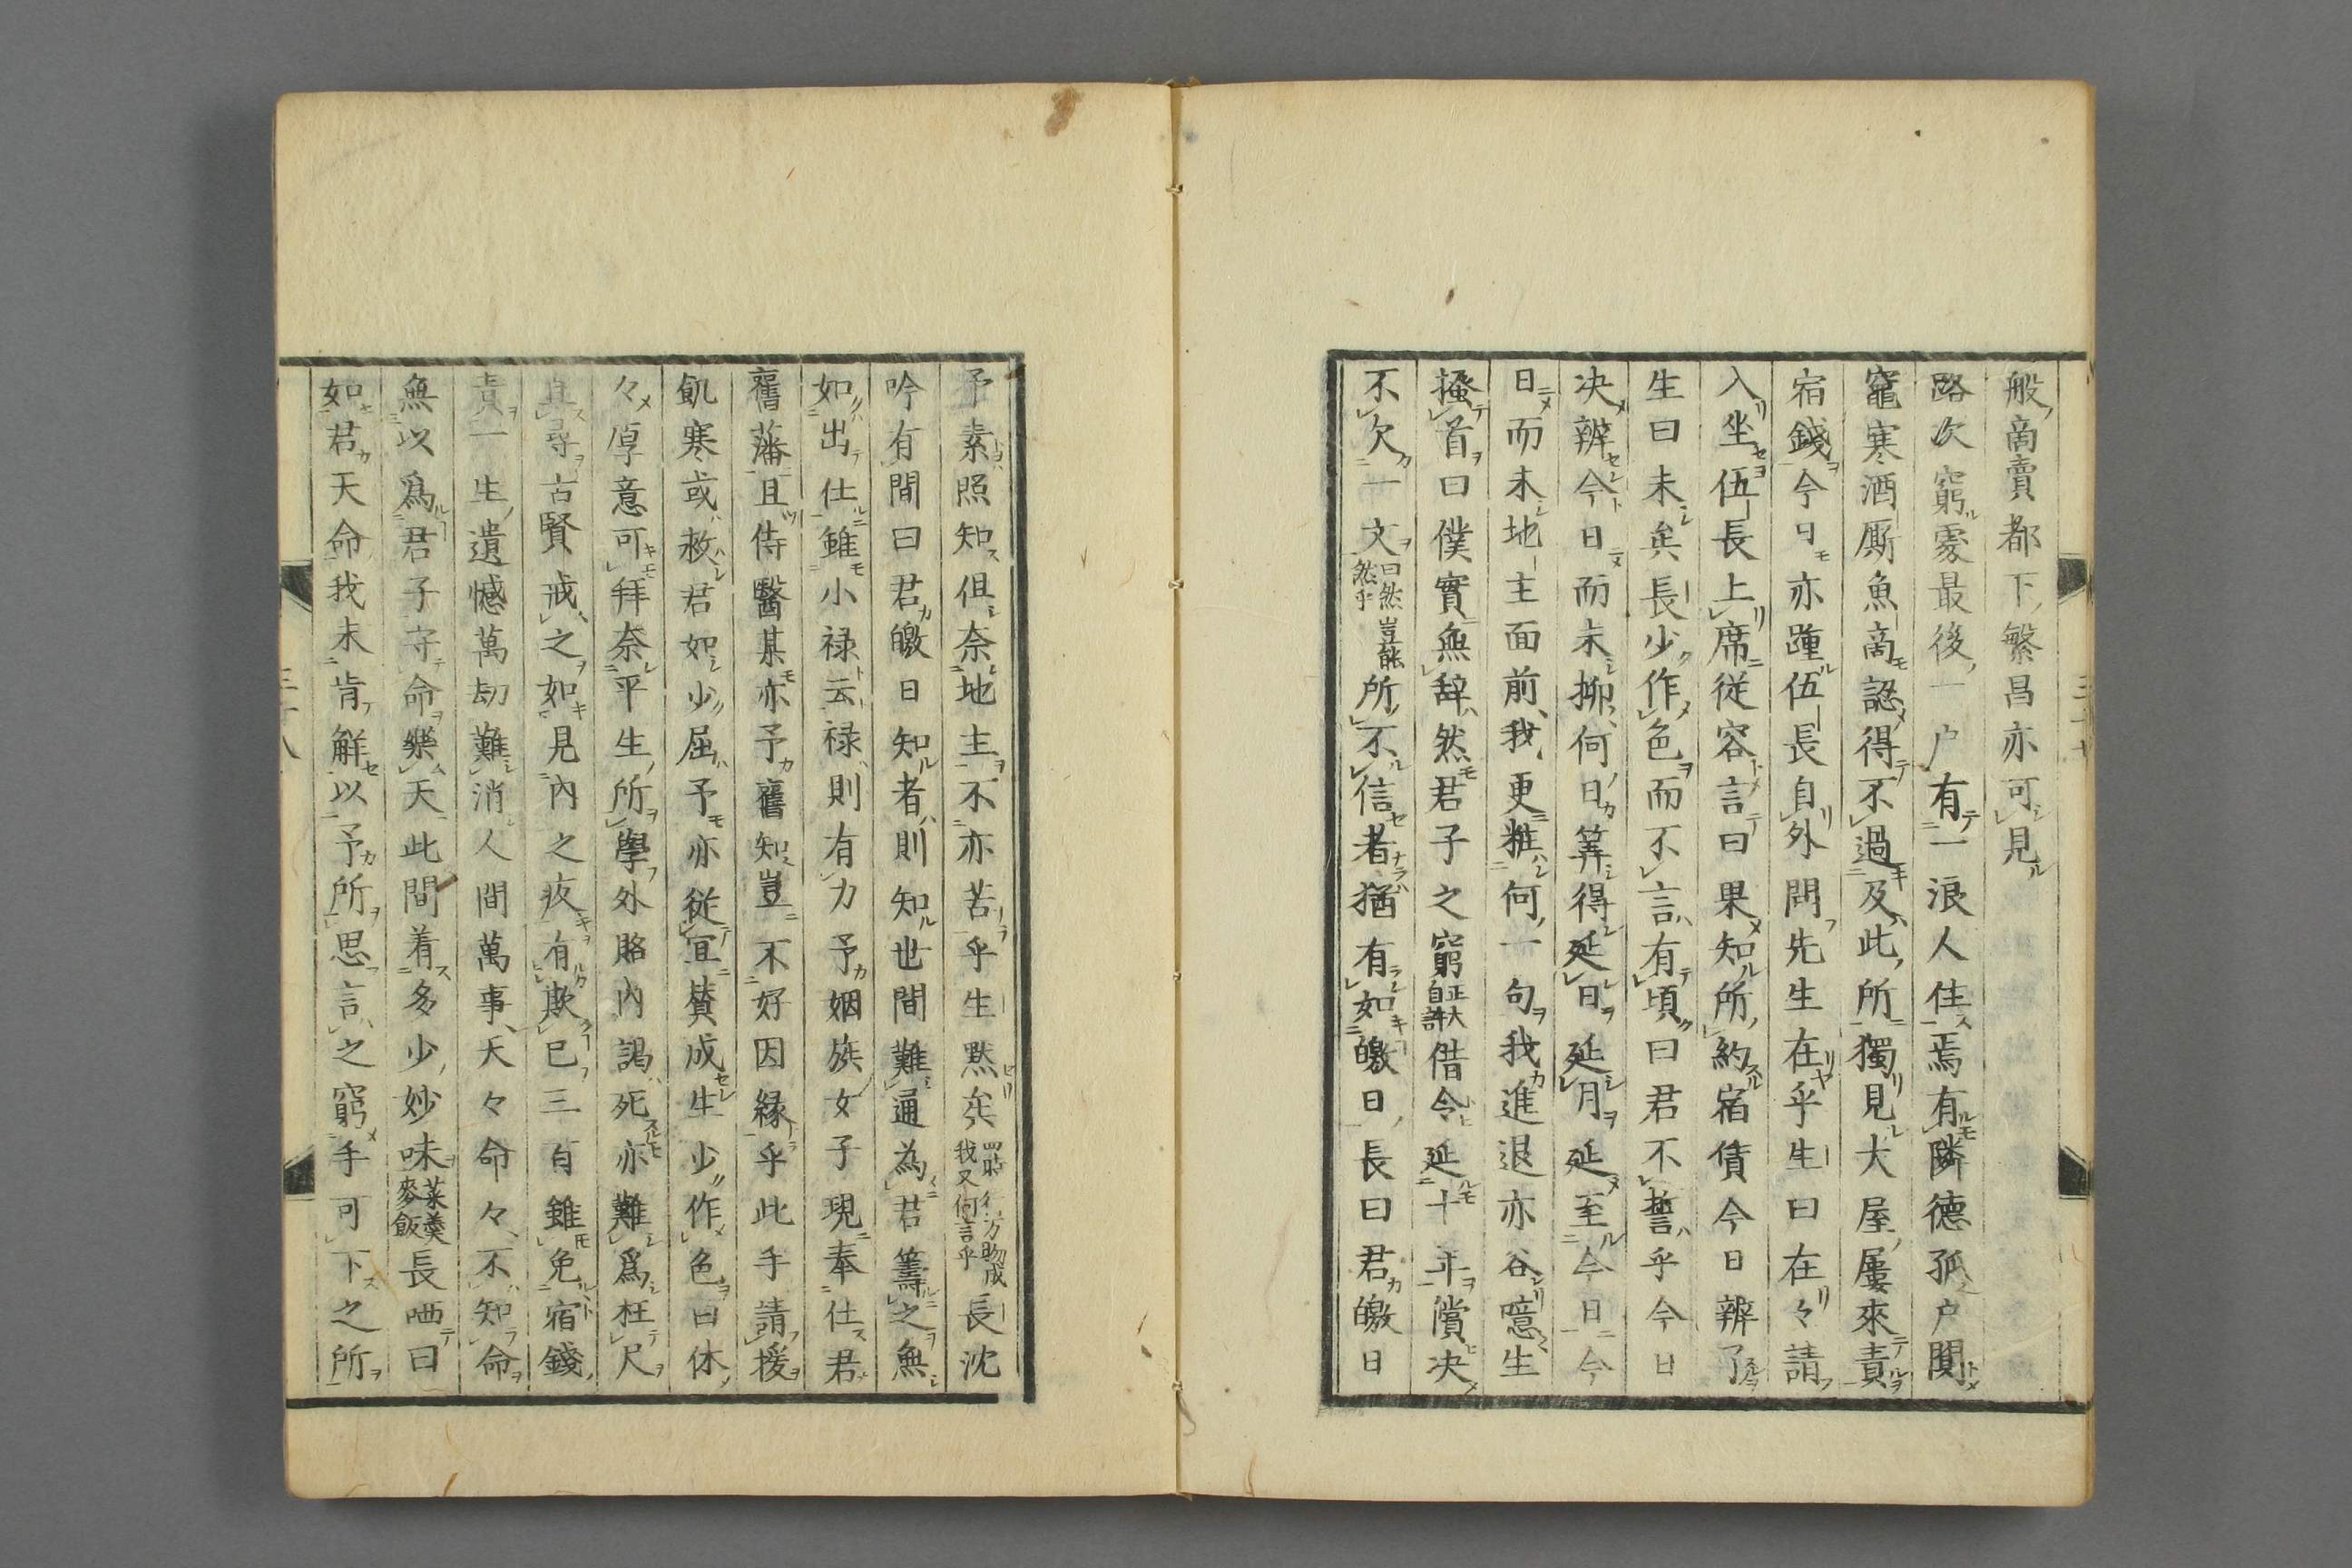 般商賣都下繁昌亦可見
路次窮處最後一户有一浪人住焉有隣德孤户闃
竈寒酒厮魚商認得不過及此所獨見大屋屢來責
宿錢今日亦踵伍長自外問先生在乎生曰在々請
入坐伍長上席従容言曰果知所約宿債今日辨了
生曰未矣長少作色而不言有頃曰君不誓乎今日
决辨今日而未抑何日筭得延日延月延至今日今
日而未地主面前我更粧何一句我進退亦谷噫生
掻首曰僕實無辞然君子之窮正大自許借令延十年償决
不欠一文曰然然乎豈能所不信者猶有如皦日長曰君皦日
予素照知但奈地主不亦苦乎生黙矣四時行万物成我又何言乎長沈
吟有間曰君皦日知者則知也間難通為君籌之無
如出仕雖小禄云禄則有力予姻族女子現奉仕君
舊藩且侍醫某亦予舊知豈不好因縁乎此手請援
飢寒或救君如少屈予亦従宜賛成生少作色曰休
々厚意可拜奈平生所學外賂内謁死亦難爲枉尺
直尋古賢戒之如見内之疚有欺已三百雖免宿錢
責一生遺憾萬刼難消人間萬事天々命々不知命
無以爲君子守命樂天此間着多少妙味菜羹麥飯長哂曰
如君天命我未肯解以予所思言之窮手可下之所